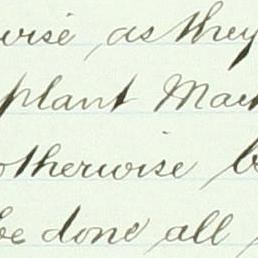 wise, as they
plant Ma
otherwise b
be done all